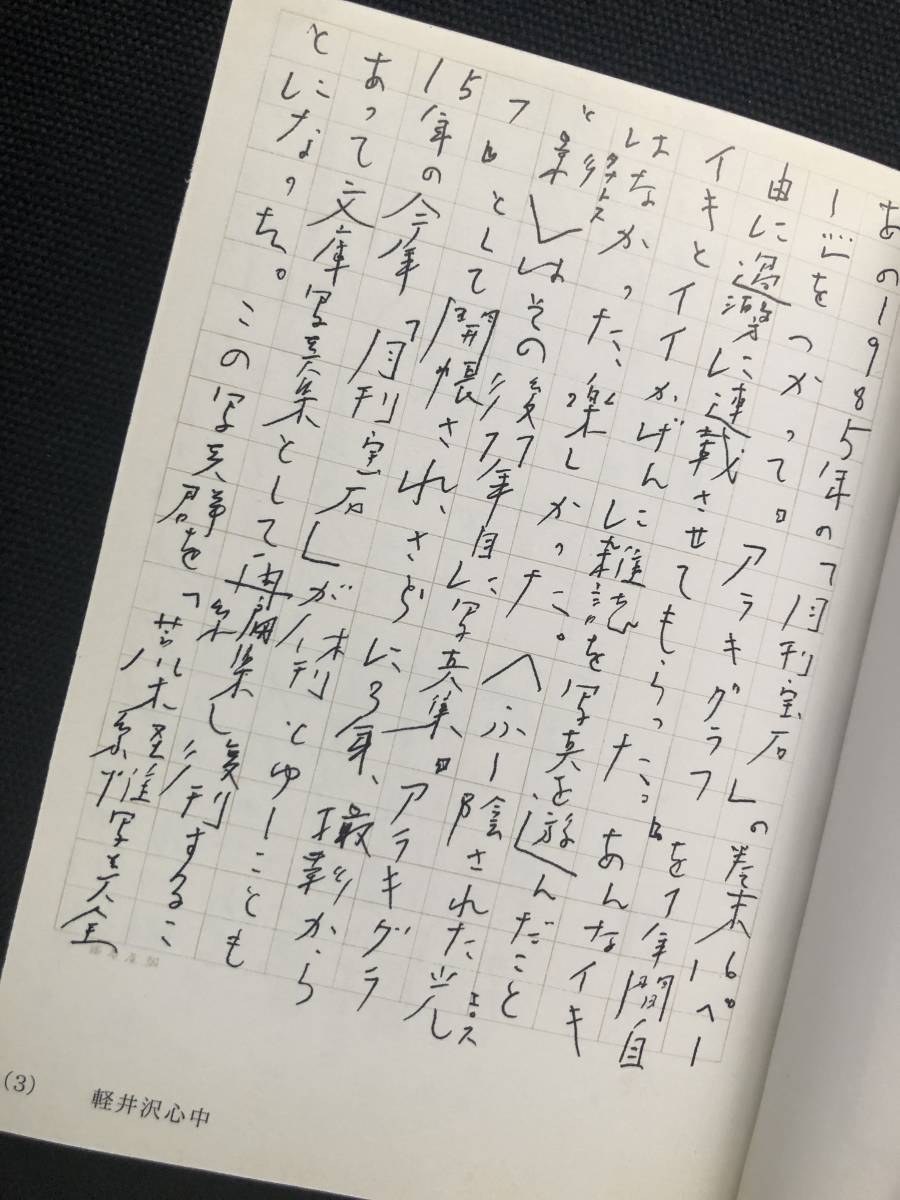 あの1985年の「月刊宝石」の巻末6ペー
ジをつかって『アラキグラフ』を7年間自
由に過激に連載させてもらった。あんなイキ
イキとイイかげんに雑誌を写真を遊んだこと
はなかった、楽しかった。〈ふー陰された光エロス
と影タナトス〉はその後7年目に写真集『アラキグラ
フ』として開帳され、さらに3年、最終章から
15年の今年「月刊宝石」が休刊とゆーことも
あって文庫写真集として再編集し復刊するこ
とになった。この写真群を「荒木経惟写真全
(3) 軽井沢心中